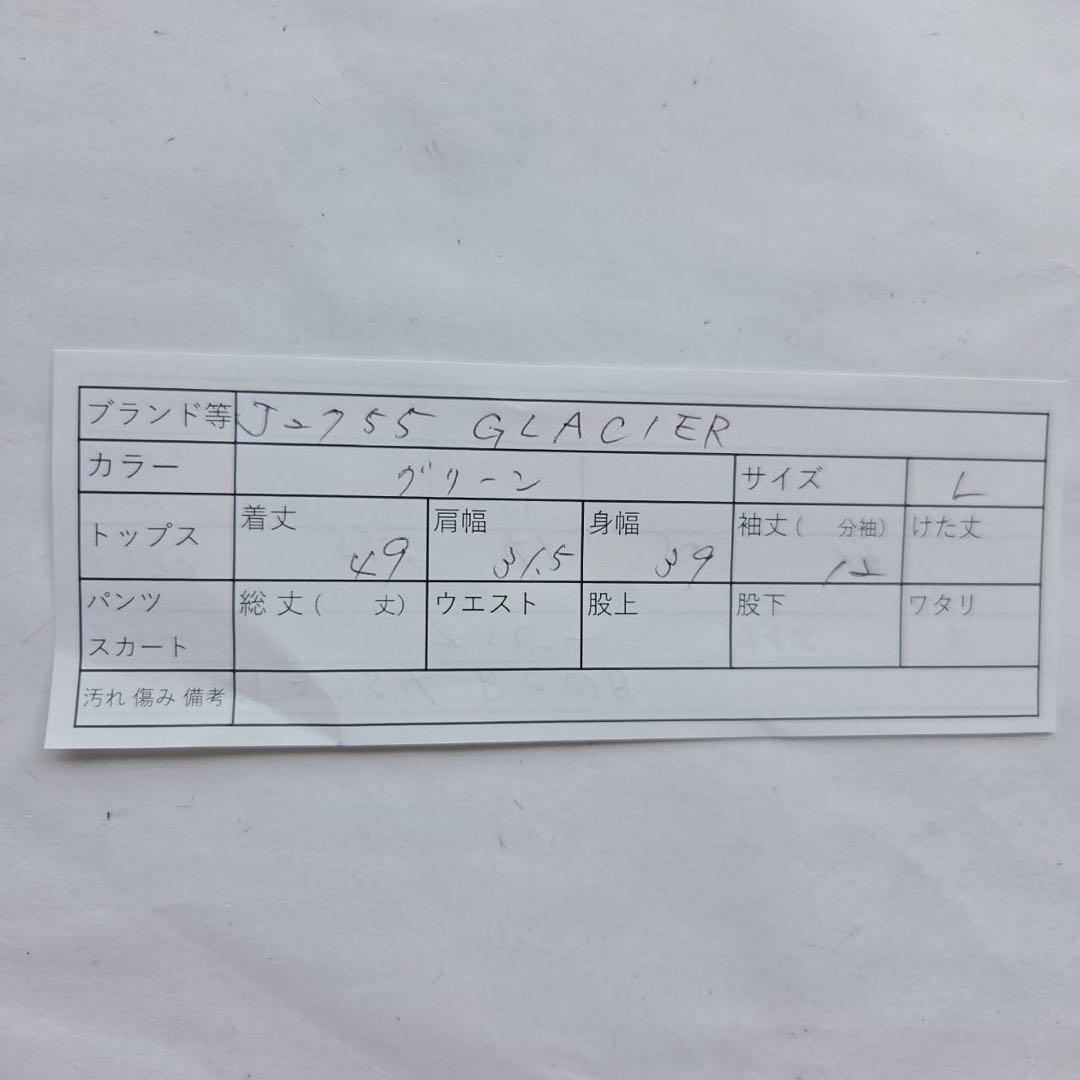 ブランド等 J-2755 GLACIER
カラー グリーン サイズ L
トップス 着丈 49 肩幅 31.5 身幅 39 袖丈( 分袖) 12 けた丈
パンツ スカート 総丈( 丈) ウエスト 股上 股下 ワタリ
汚れ 傷み 備考